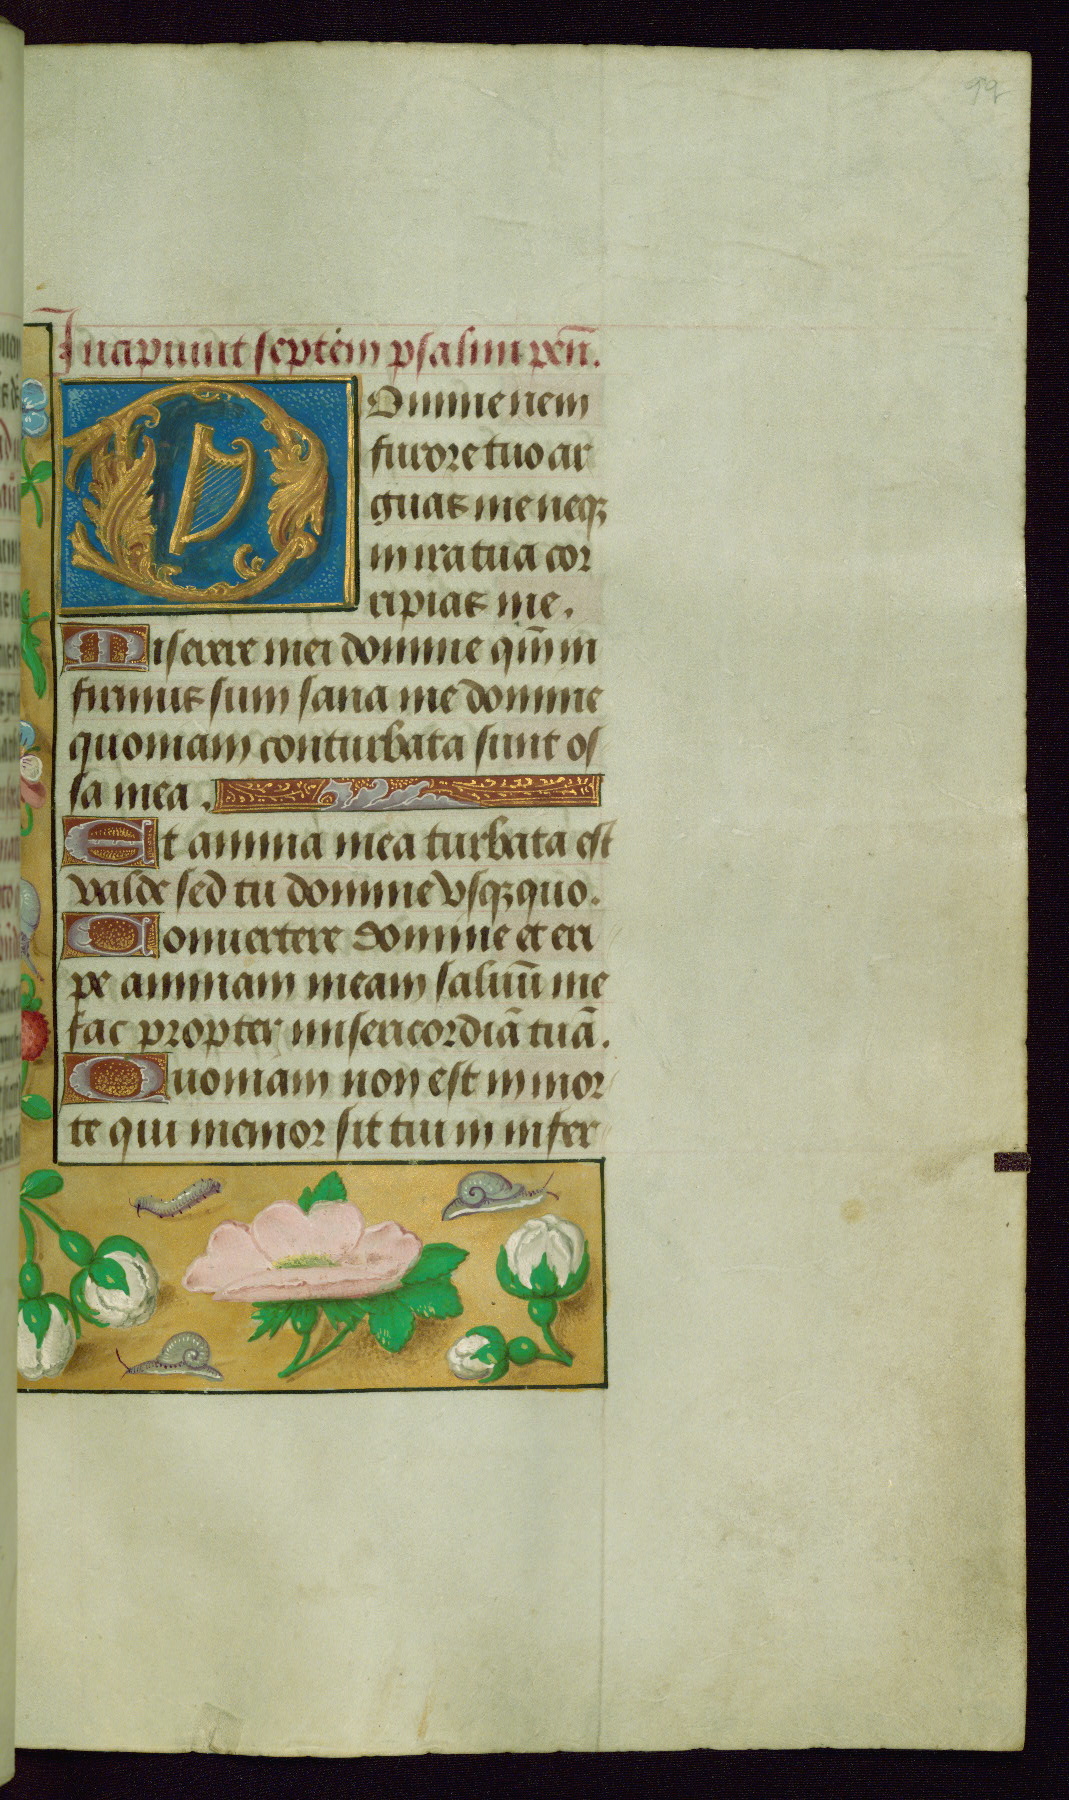 99
Incipiunt septem psalmi peñ.
Domine ne in
furore tuo ar
guas me neqꝫ
in ira tua cor
ripias me.
Miserere mei domine qm̄ in
firmus sum sana me domine
quoniam conturbata sunt os
sa mea.
Et anima mea turbata est
valde sed tu domine vsqꝫ quo.
Conuertere domine et eri
pe animam meam saluū me
fac propter misericordiā tuā.
Quoniam non est in mor
te qui memor sit tui in infer